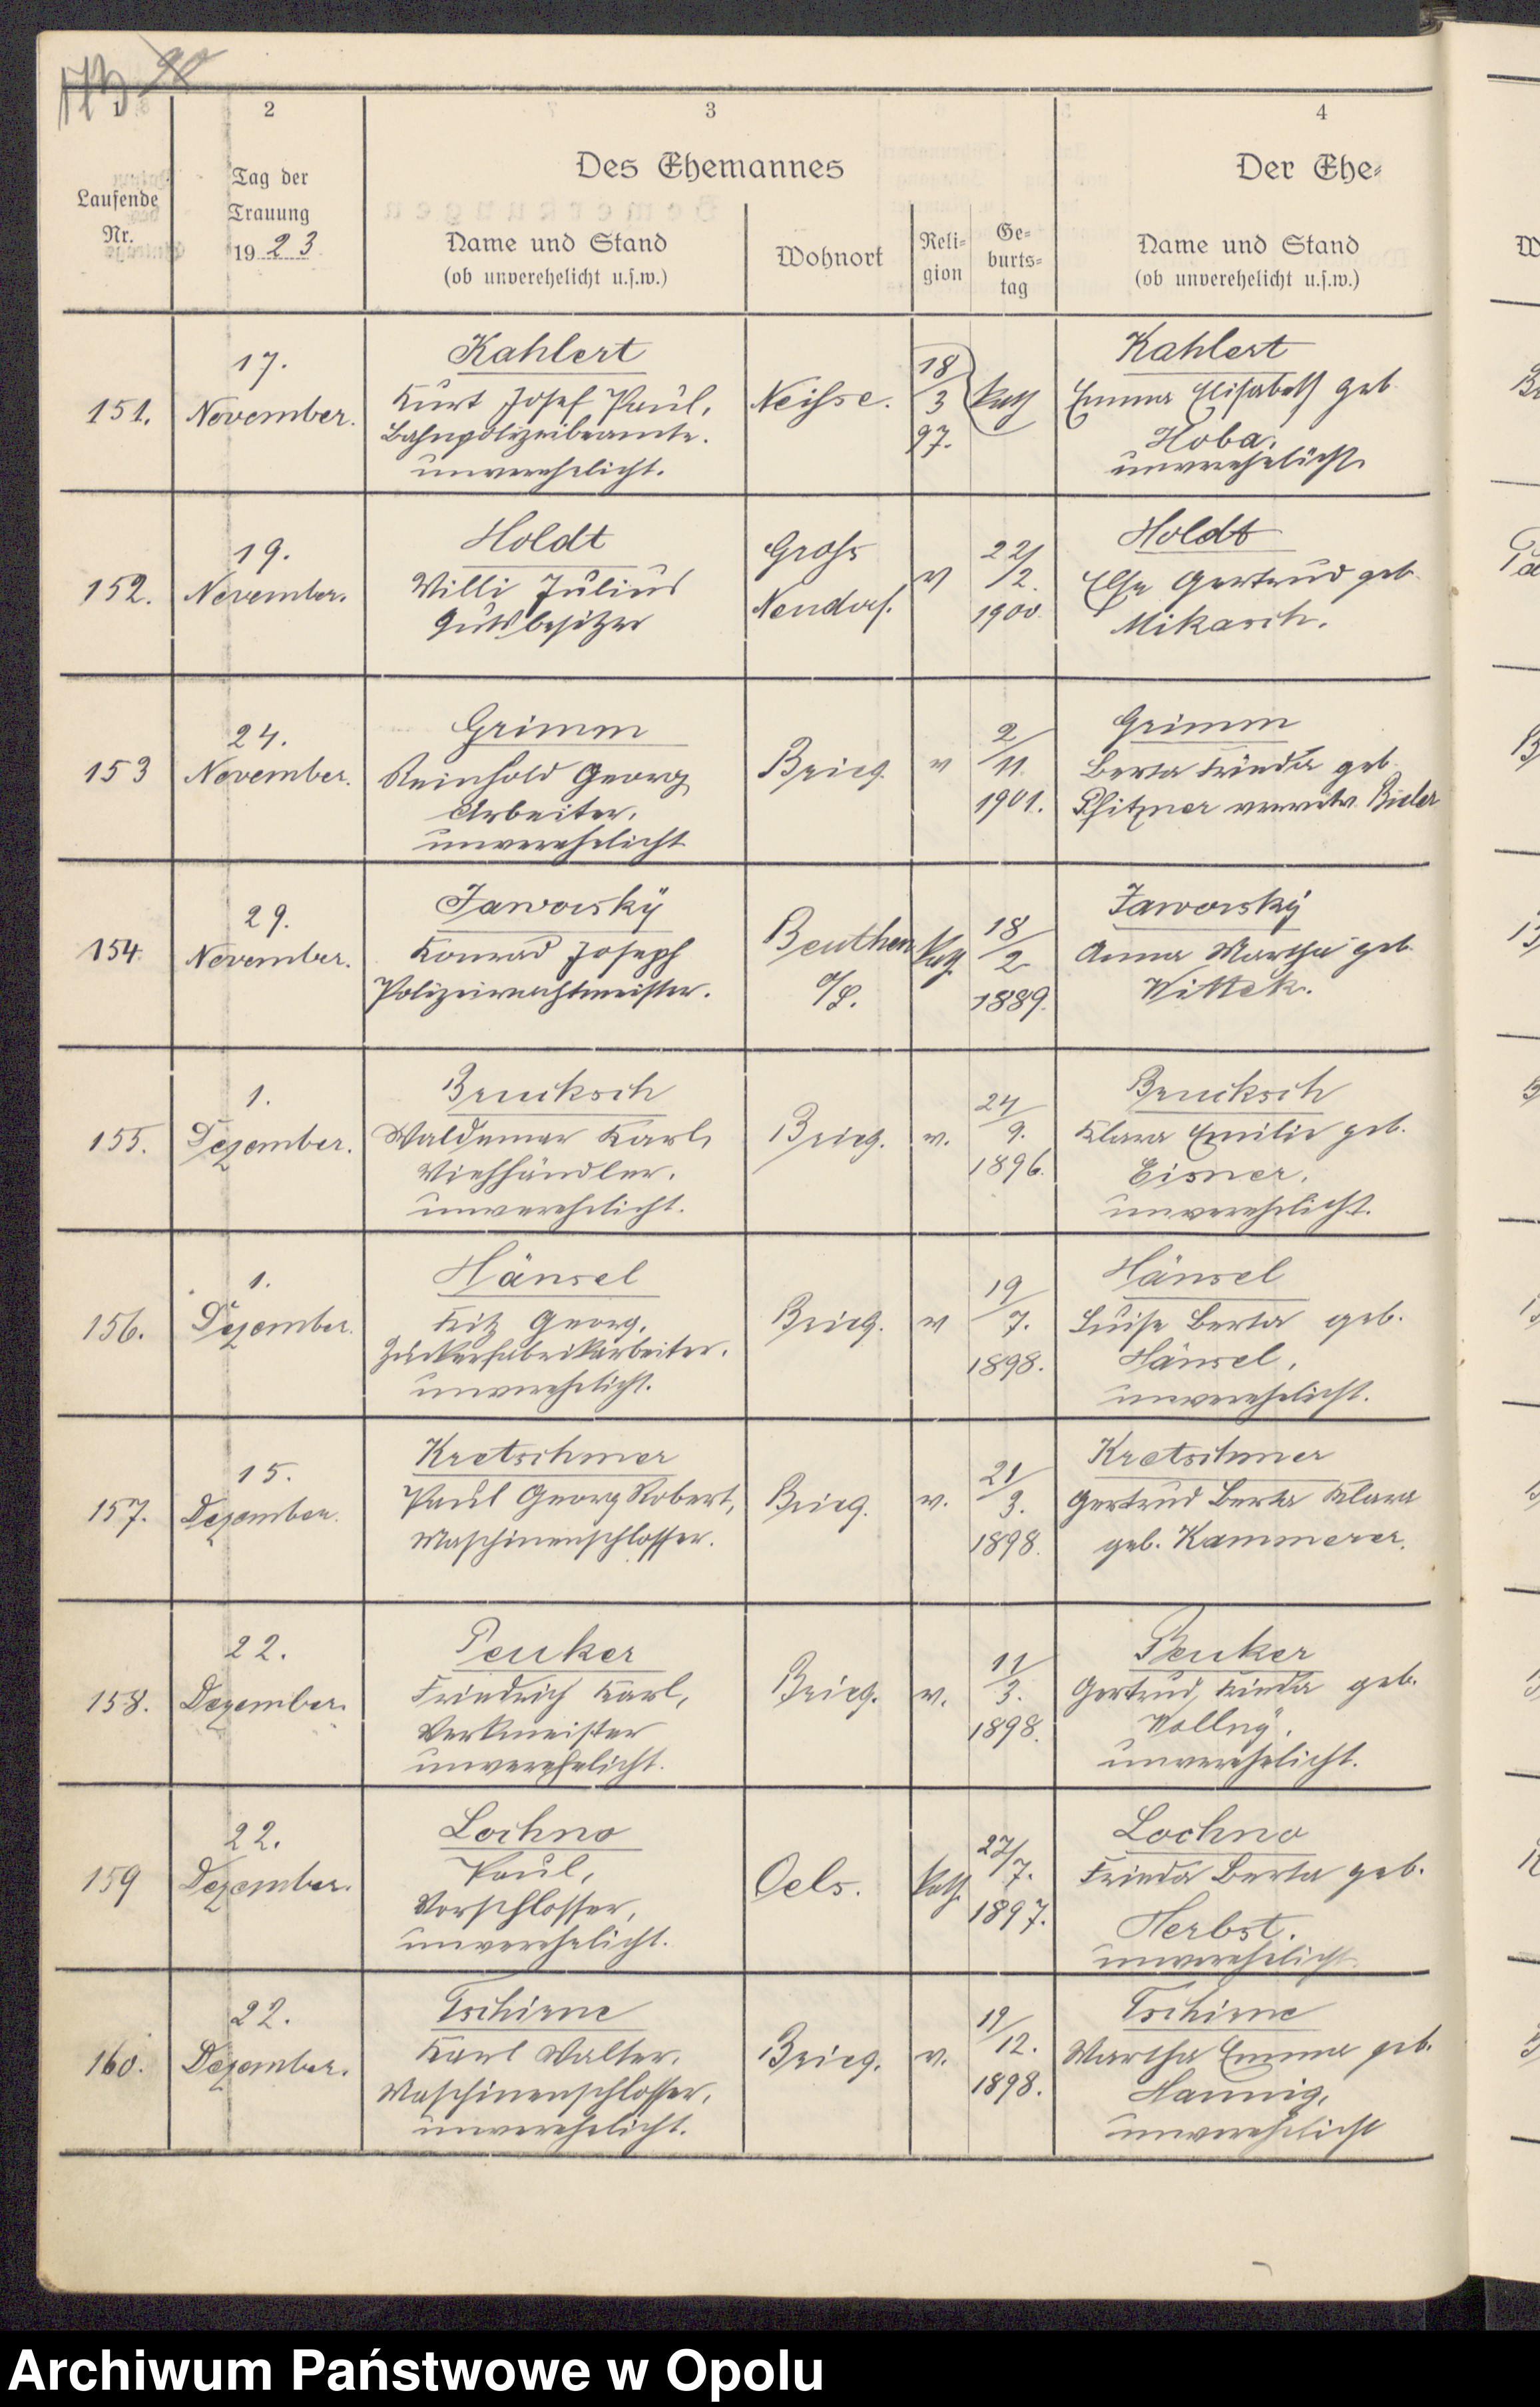 1 2 3 4
Des Ehemannes Der Ehe-
Laufende Nr.
Tag der Trauung 1923
Name und Stand (ob unverehelicht u.s.w.)
Wohnort
Reli-gion
Ge-burts-tag
Name und Stand (ob unverehelicht u.s.w.)
151.
17. November.
Kahlert
Kurt Josef Paul,
Bahnpolizeibeamte.
unverehelicht.
Neisse.
18/3 97.
kath
Kahlert
Emma Elisabeth geb.
Hoba.
unverehelicht.
152.
19. November.
Holdt
Willi Julius
Gutsbesitzer
Gross Neudorf.
v
22/2. 1900.
Holdt
Else Gertrud geb.
Mikasch.
153
24. November.
Grimm
Reinhold Georg
Arbeiter.
unverehelicht
Brieg.
v
2/11. 1901.
Grimm
Berta Frieda geb.
Pfitzner verwitw. Bieler
154.
29. November.
Jaworskÿ
Konrad Joseph
Polizeiwachtmeister.
Beuthen O/S.
kath.
18/2 1889.
Jaworskÿ
Anna Martha geb.
Wittek.
155.
1. Dezember.
Brucksch
Waldemar Karl,
Viehhändler.
unverehelicht.
Brieg.
v.
24/9. 1896.
Brucksch
Klara Emilie geb.
Eisner.
unverehelicht.
156.
1. Dezember.
Hänsel
Fritz Georg,
Zuckerfabrikarbeiter.
unverehelicht.
Brieg.
v
19/7. 1898.
Hänsel
Luise Berta geb.
Hänsel.
unverehelicht.
157.
15. Dezember.
Kretschmer
Paul Georg Robert,
Maschinenschlosser.
Brieg.
v.
21/3. 1898.
Kretschmer
Gertrud Berta Klara
geb. Kammerer.
158.
22. Dezember.
Peuker
Friedrich Karl,
Werkmeister
unverehelicht.
Brieg.
v.
11/3. 1898.
Peuker
Gertrud, Frieda geb.
Wollnÿ.
unverehelicht.
159
22. Dezember.
Lochno
Paul,
Vorschlosser,
unverehelicht.
Oels.
kath.
27/7. 1897.
Lochno
Frieda Berta geb.
Herbst.
unverehelicht.
160.
22. Dezember.
Tschirne
Karl Walter.
Maschinenschlosser,
unverehelicht.
Brieg.
v.
19/12. 1898.
Tschirne
Martha Emma geb.
Hannig,
unverehelicht
Archiwum Państwowe w Opolu